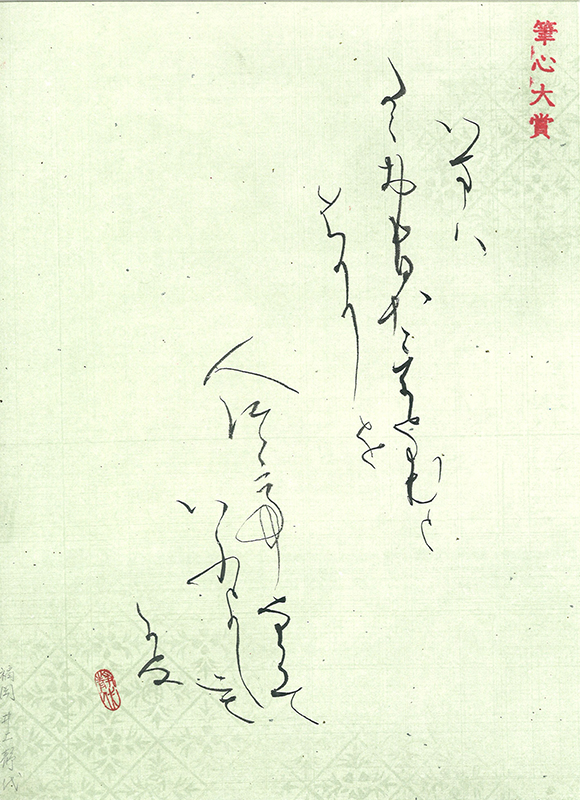 筆心大賞
いまハ
たゝおもひたえなむと
はかりを
人つてならて
いふよしも
かな
福岡 井上静代